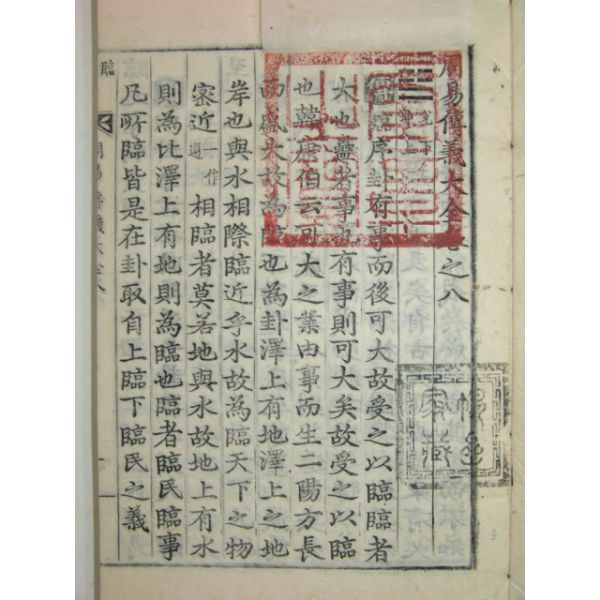 周易傳義大全卷之八
臨序卦有事而後可大故受之以臨臨者
大也蠱者事也有事則可大矣故受之以臨
也韓康伯云可大之業由事而生二陽方長
而盛大故為臨也為卦澤上有地澤上之地
岸也與水相際臨近乎水故為臨天下之物
密近一作邇相臨者莫若地與水故地上有水
則為比澤上有地則為臨也臨者臨民臨事
凡所臨皆是在卦取自上臨下臨民之義
臨
周易傳義大全八